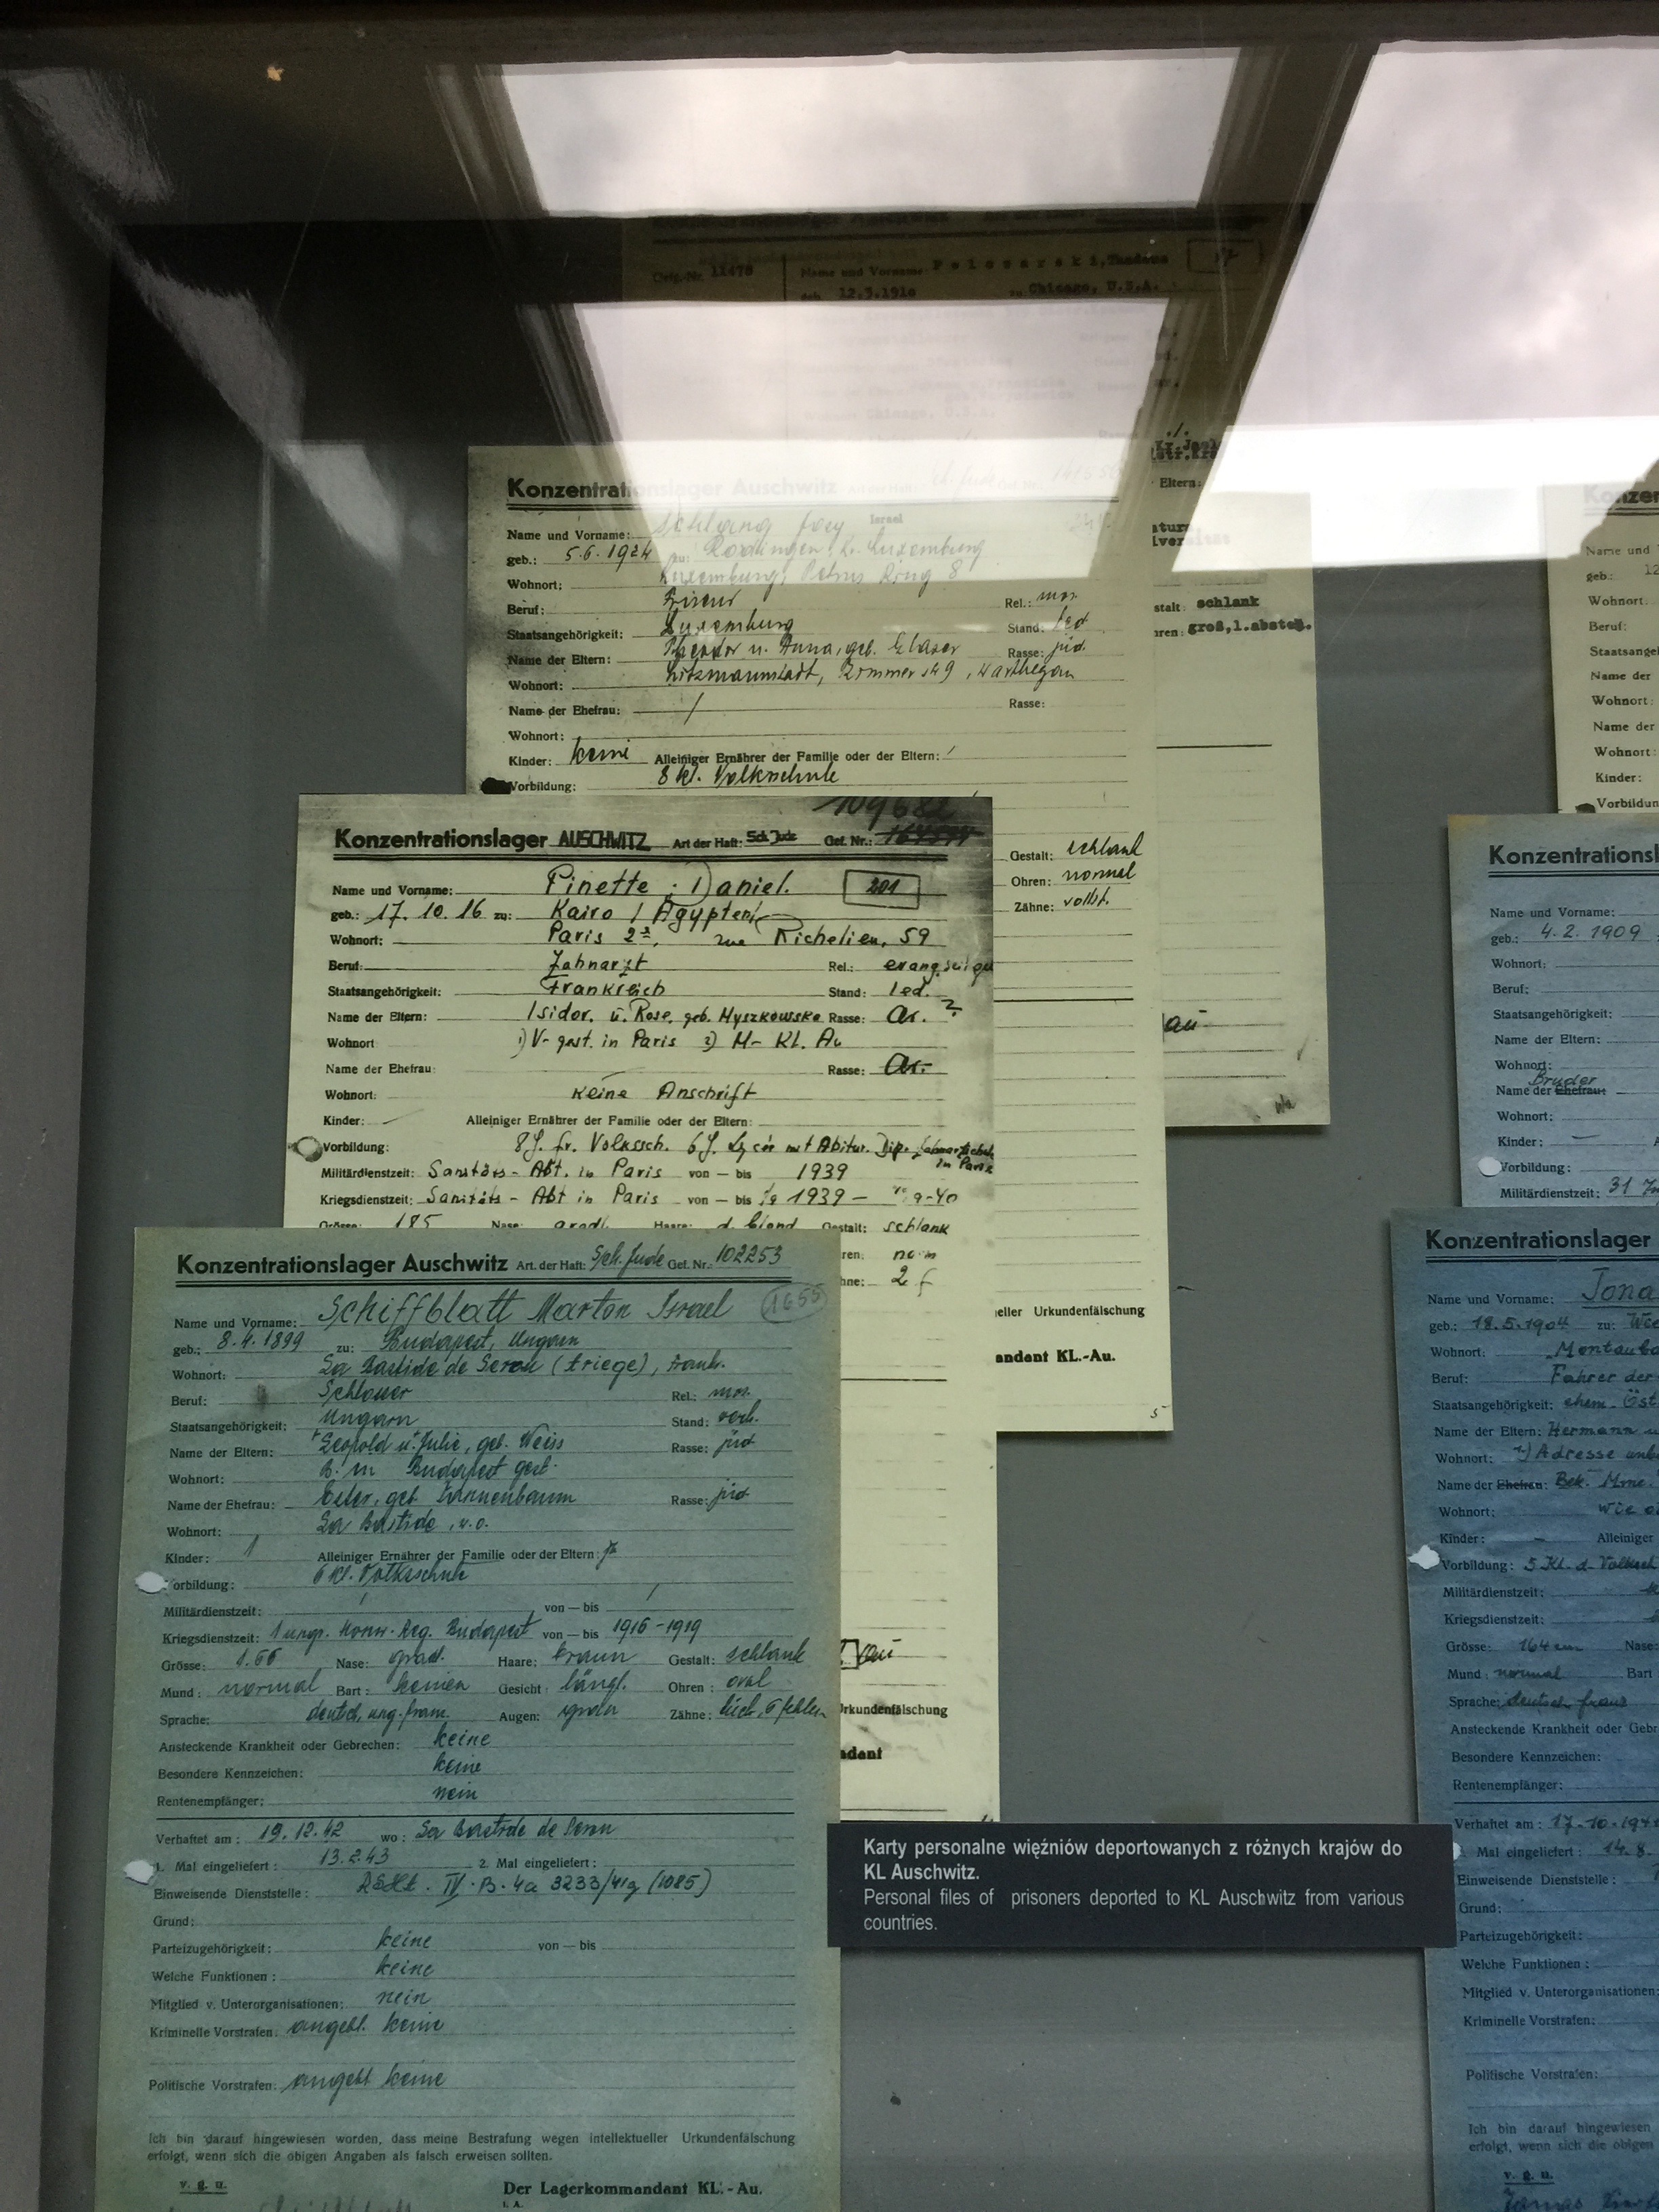 Gef.-Nr. 11478
Name und Vorname:
geb. 12.5.1910 zu Chicago, U.S.A.
Chicago, U.S.A.
Eltern:
schlank
groß,l.absteh.
Konzentrationslager Auschwitz Art der Haft:
Name und Vorname: Israel
geb.: 5.6.1924 zu: Luxemburg
Wohnort: Luxemburg, Petrus Ring 8
Beruf: Friseur Rel.: mos.
Staatsangehörigkeit: Luxemburg Stand: led.
Name der Eltern: Theodor u. Anna, geb. Glaser Rasse: jüd.
Wohnort: Litzmannstadt, Zimmer 9, Warthegau
Name der Ehefrau: / Rasse:
Wohnort:
Kinder: keine Alleiniger Ernährer der Familie oder der Eltern: /
Vorbildung: 8 Kl. Volksschule
Gestalt: schlank
Ohren: normal
Zähne: vollst.
eller Urkundenfälschung
andant KL.-Au.
5
109682
Konzentrationslager AUSCHWITZ Art der Haft: Sch Jude Gef. Nr.:
Name und Vorname: Pinette : Daniel. 201
geb.: 17. 10. 16 zu: Kairo / Ägypten/
Wohnort: Paris 2, rue Richelieu, 59
Beruf: Zahnarzt Rel.: evang.
Staatsangehörigkeit: Frankreich Stand: led.
Name der Eltern: Isidor. u. Rose, geb. Myszkowska Rasse: ar. ?
Wohnort 1) V- gest. in Paris 2) M- KL. Au
Name der Ehefrau: Rasse: ar.
Wohnort: keine Anschrift
Kinder: – Alleiniger Ernährer der Familie oder der Eltern:
Vorbildung: 8 J. fr. Volkssch. 6 J. Lycée mit Abitur. Dip.
in Paris
Militärdienstzeit: Sanitäts - Abt. in Paris von — bis 1939
Kriegsdienstzeit: Sanitäts - Abt in Paris von — bis 9 1939 – 9-40
Grösse: 185 Nase: gradl. Haare: d. blond Gestalt: schlank
ren: norm
hne: 2 f
Urkundenfälschung
ndant
Konzentrationslager Auschwitz Art. der Haft: Sch. Jude Gef. Nr.: 102253
Name und Vorname: Schiffblatt Marton Israel 1655
geb.: 8.4.1899 zu: Budapest, Ungarn
Wohnort: La Bastide de Serou (Ariege), Frank.
Beruf: Schlosser Rel.: mos.
Staatsangehörigkeit: Ungarn Stand: verh.
Name der Eltern: Leopold u. Julie, geb. Weiss Rasse: jüd
Wohnort: Budapest gest.
Name der Ehefrau: Ester, geb. Tannenbaum Rasse: jüd
Wohnort: La Bastide, w.o.
Kinder: 1 Alleiniger Ernährer der Familie oder der Eltern: ja
Vorbildung: 6 Kl. Volksschule
Militärdienstzeit: / von — bis /
Kriegsdienstzeit: 1 ungr. Honv. Reg. Budapest von — bis 1916 - 1919
Grösse: 1.66 Nase: grad. Haare: braun Gestalt: schlank
Mund: normal Bart: keinen Gesicht: längl. Ohren: oval
Sprache: deutsch, ung. franz. Augen: Zähne: lück, 6 fehlen
Ansteckende Krankheit oder Gebrechen: keine
Besondere Kennzeichen: keine
Rentenempfänger: nein
Verhaftet am: 19.12.42 wo: La Bastide de Serou
1. Mal eingeliefert: 13.2.43 2. Mal eingeliefert:
Einweisende Dienststelle: RSHA. IV. B. 4a 3233/41g (1085)
Grund:
Parteizugehörigkeit: keine von — bis
Welche Funktionen: keine
Mitglied v. Unterorganisationen: nein
Kriminelle Vorstrafen: angebl. keine
Politische Vorstrafen: angebl keine
Ich bin darauf hingewiesen worden, dass meine Bestrafung wegen intellektueller Urkundenfälschung
erfolgt, wenn sich die obigen Angaben als falsch erweisen sollten.
v. g. u. Der Lagerkommandant KL.- Au.
I. A.
Karty personalne więźniów deportowanych z różnych krajów do
KL Auschwitz.
Personal files of prisoners deported to KL Auschwitz from various
countries.
Konze
Name und
geb.: 12
Wohnort:
Beruf:
Staatsangel
Name der
Wohnort:
Name der
Wohnort:
Kinder:
Vorbildun
Konzentrationsl
Name und Vorname:
geb.: 4.2.1909
Wohnort:
Beruf:
Staatsangehörigkeit:
Name der Eltern:
Wohnort:
Bruder
Name der Ehefrau:
Wohnort:
Kinder: —
Vorbildung:
Militärdienstzeit: 31
Konzentrationslager
Name und Vorname: Jona
geb.: 18.5.1904 zu: Wie
Wohnort: Montauba
Beruf: Fahrer der
Staatsangehörigkeit: ehem. Öst
Name der Eltern: Hermann u
Wohnort: Adresse unb
Name der Ehefrau: Bek. Mme.
Wohnort: wie o
Kinder: – Alleiniger
Vorbildung: 5 Kl. d. Volksch
Militärdienstzeit:
Kriegsdienstzeit:
Grösse: 164 cm Nase:
Mund: normal Bart
Sprache: deutsch franz
Ansteckende Krankheit oder Gebr
Besondere Kennzeichen:
Rentenempfänger:
Verhaftet am: 17.10.194
Mal eingeliefert: 14.8.
Einweisende Dienststelle:
Grund:
Parteizugehörigkeit:
Welche Funktionen:
Mitglied v. Unterorganisationen:
Kriminelle Vorstrafen:
Politische Vorstrafen:
Ich bin darauf hingewiesen
erfolgt, wenn sich die obigen
v. g. u.